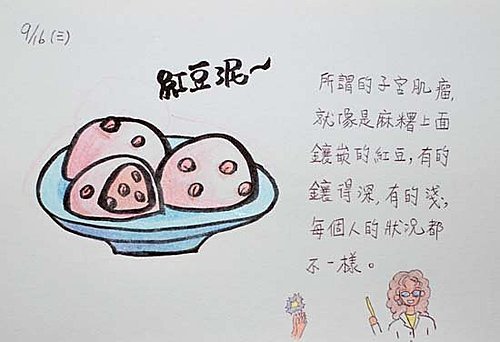 9/16 (三)
紅豆泥～
所謂的子宮肌瘤,
就像是麻糬上面
鑲嵌的紅豆,有的
鑲得深,有的淺,
每個人的狀況都
不一樣。